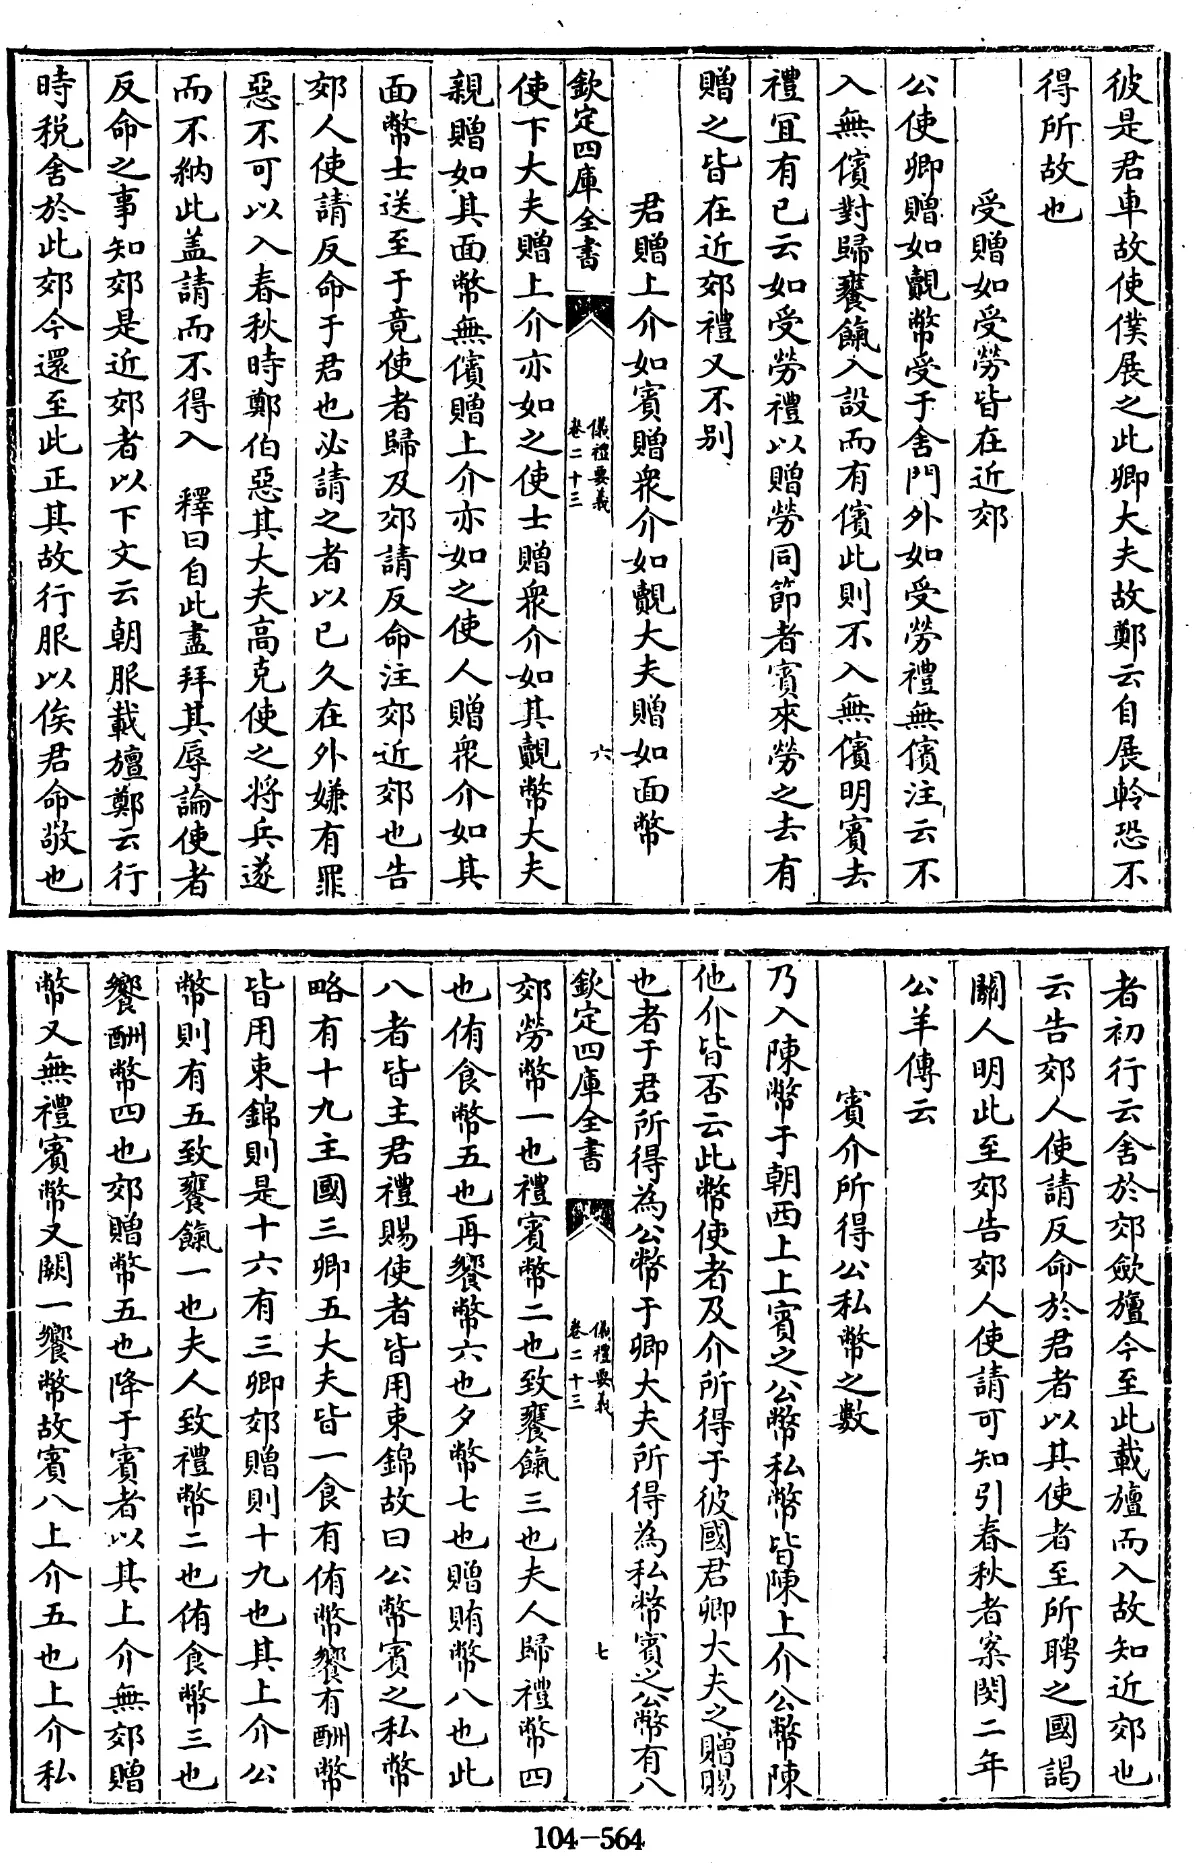 彼是君車故使僕展之此卿大夫故鄭云自展軨恐不
得所故也
受贈如受勞皆在近郊
公使卿贈如覿幣受于舍門外如受勞禮無儐注云不
入無儐對歸饔餼入設而有儐此則不入無儐明賓去
禮宜有已云如受勞禮以贈勞同節者賓來勞之去有
贈之皆在近郊禮又不别
君贈上介如賓贈衆介如覿大夫贈如面幣
欽定四庫全書
儀禮要義
卷二十三
六
使下大夫贈上介亦如之使士贈衆介如其覿幣大夫
親贈如其面幣無儐贈上介亦如之使人贈衆介如其
面幣士送至于竟使者歸及郊請反命注郊近郊也告
郊人使請反命于君也必請之者以已久在外嫌有罪
惡不可以入春秋時鄭伯惡其大夫高克使之將兵遂
而不納此盖請而不得入 釋曰自此盡拜其辱論使者
反命之事知郊是近郊者以下文云朝服載旜鄭云行
時税舍於此郊今還至此正其故行服以俟君命敬也
者初行云舍於郊歛旜今至此載旜而入故知近郊也
云告郊人使請反命於君者以其使者至所聘之國謁
關人明此至郊告郊人使請可知引春秋者案閔二年
公羊傳云
賓介所得公私幣之數
乃入陳幣于朝西上上賓之公幣私幣皆陳上介公幣陳
他介皆否云此幣使者及介所得于彼國君卿大夫之贈賜
也者于君所得為公幣于卿大夫所得為私幣賓之公幣有八
欽定四庫全書
儀禮要義
卷二十三
七
郊勞幣一也禮賓幣二也致饔餼三也夫人歸禮幣四
也侑食幣五也再饗幣六也夕幣七也贈賄幣八也此
八者皆主君禮賜使者皆用束錦故曰公幣賓之私幣
略有十九主國三卿五大夫皆一食有侑幣饗有酬幣
皆用束錦則是十六有三卿郊贈則十九也其上介公
幣則有五致饔餼一也夫人致禮幣二也侑食幣三也
饗酬幣四也郊贈幣五也降于賓者以其上介無郊贈
幣又無禮賓幣又闕一饗幣故賓八上介五也上介私
104-564